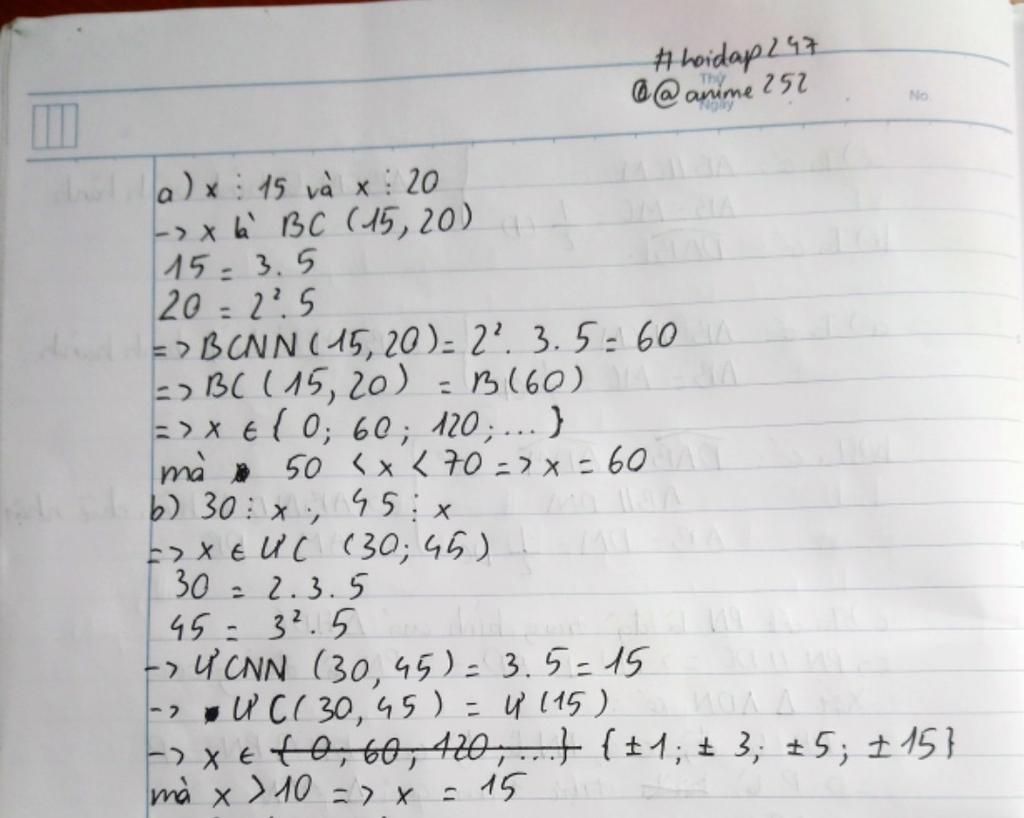 #hoidap247
@anime252
Thứ
Ngày
No.
a) x ⋮ 15 và x ⋮ 20
-> x là BC (15, 20)
15 = 3. 5
20 = 2². 5
=> BCNN (15, 20) = 2². 3. 5 = 60
=> BC (15, 20) = B(60)
=> x ∈ { 0; 60; 120; ... }
mà 50 < x < 70 => x = 60
b) 30 ⋮ x ; 45 ⋮ x
=> x ∈ ƯC (30; 45)
30 = 2. 3. 5
45 = 3². 5
-> ƯCNN (30, 45) = 3. 5 = 15
-> ƯC (30, 45) = Ư (15)
-> x ∈ { 0; 60; 120; ... } { ±1; ± 3; ±5; ± 15}
mà x > 10 => x = 15